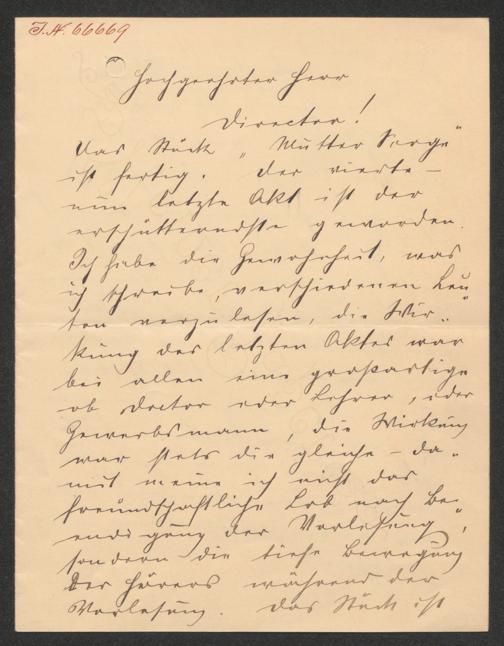 I.N. 66669
Hochgeehrter Herr
Director!
Das Stück „Mutter Sorge"
ist fertig. Der vierte –
nun letzte Akt ist der
erschütterndste geworden.
Ich habe die Gewohnheit, was
ich schreibe, verschiedenen Leu
ten vorzulesen, die Wir-
kung des letzten Aktes war
bei allen eine großartige
ob Doctor oder Lehrer, oder
Gewerbsmann, die Wirkung
war stets die gleiche – da-
mit meine ich nicht das
freundschaftliche Lob nach Be-
endigung der Vorlesung,
sondern die tiefe Bewegung
des Hörers während der
Vorlesung. Das Stück ist